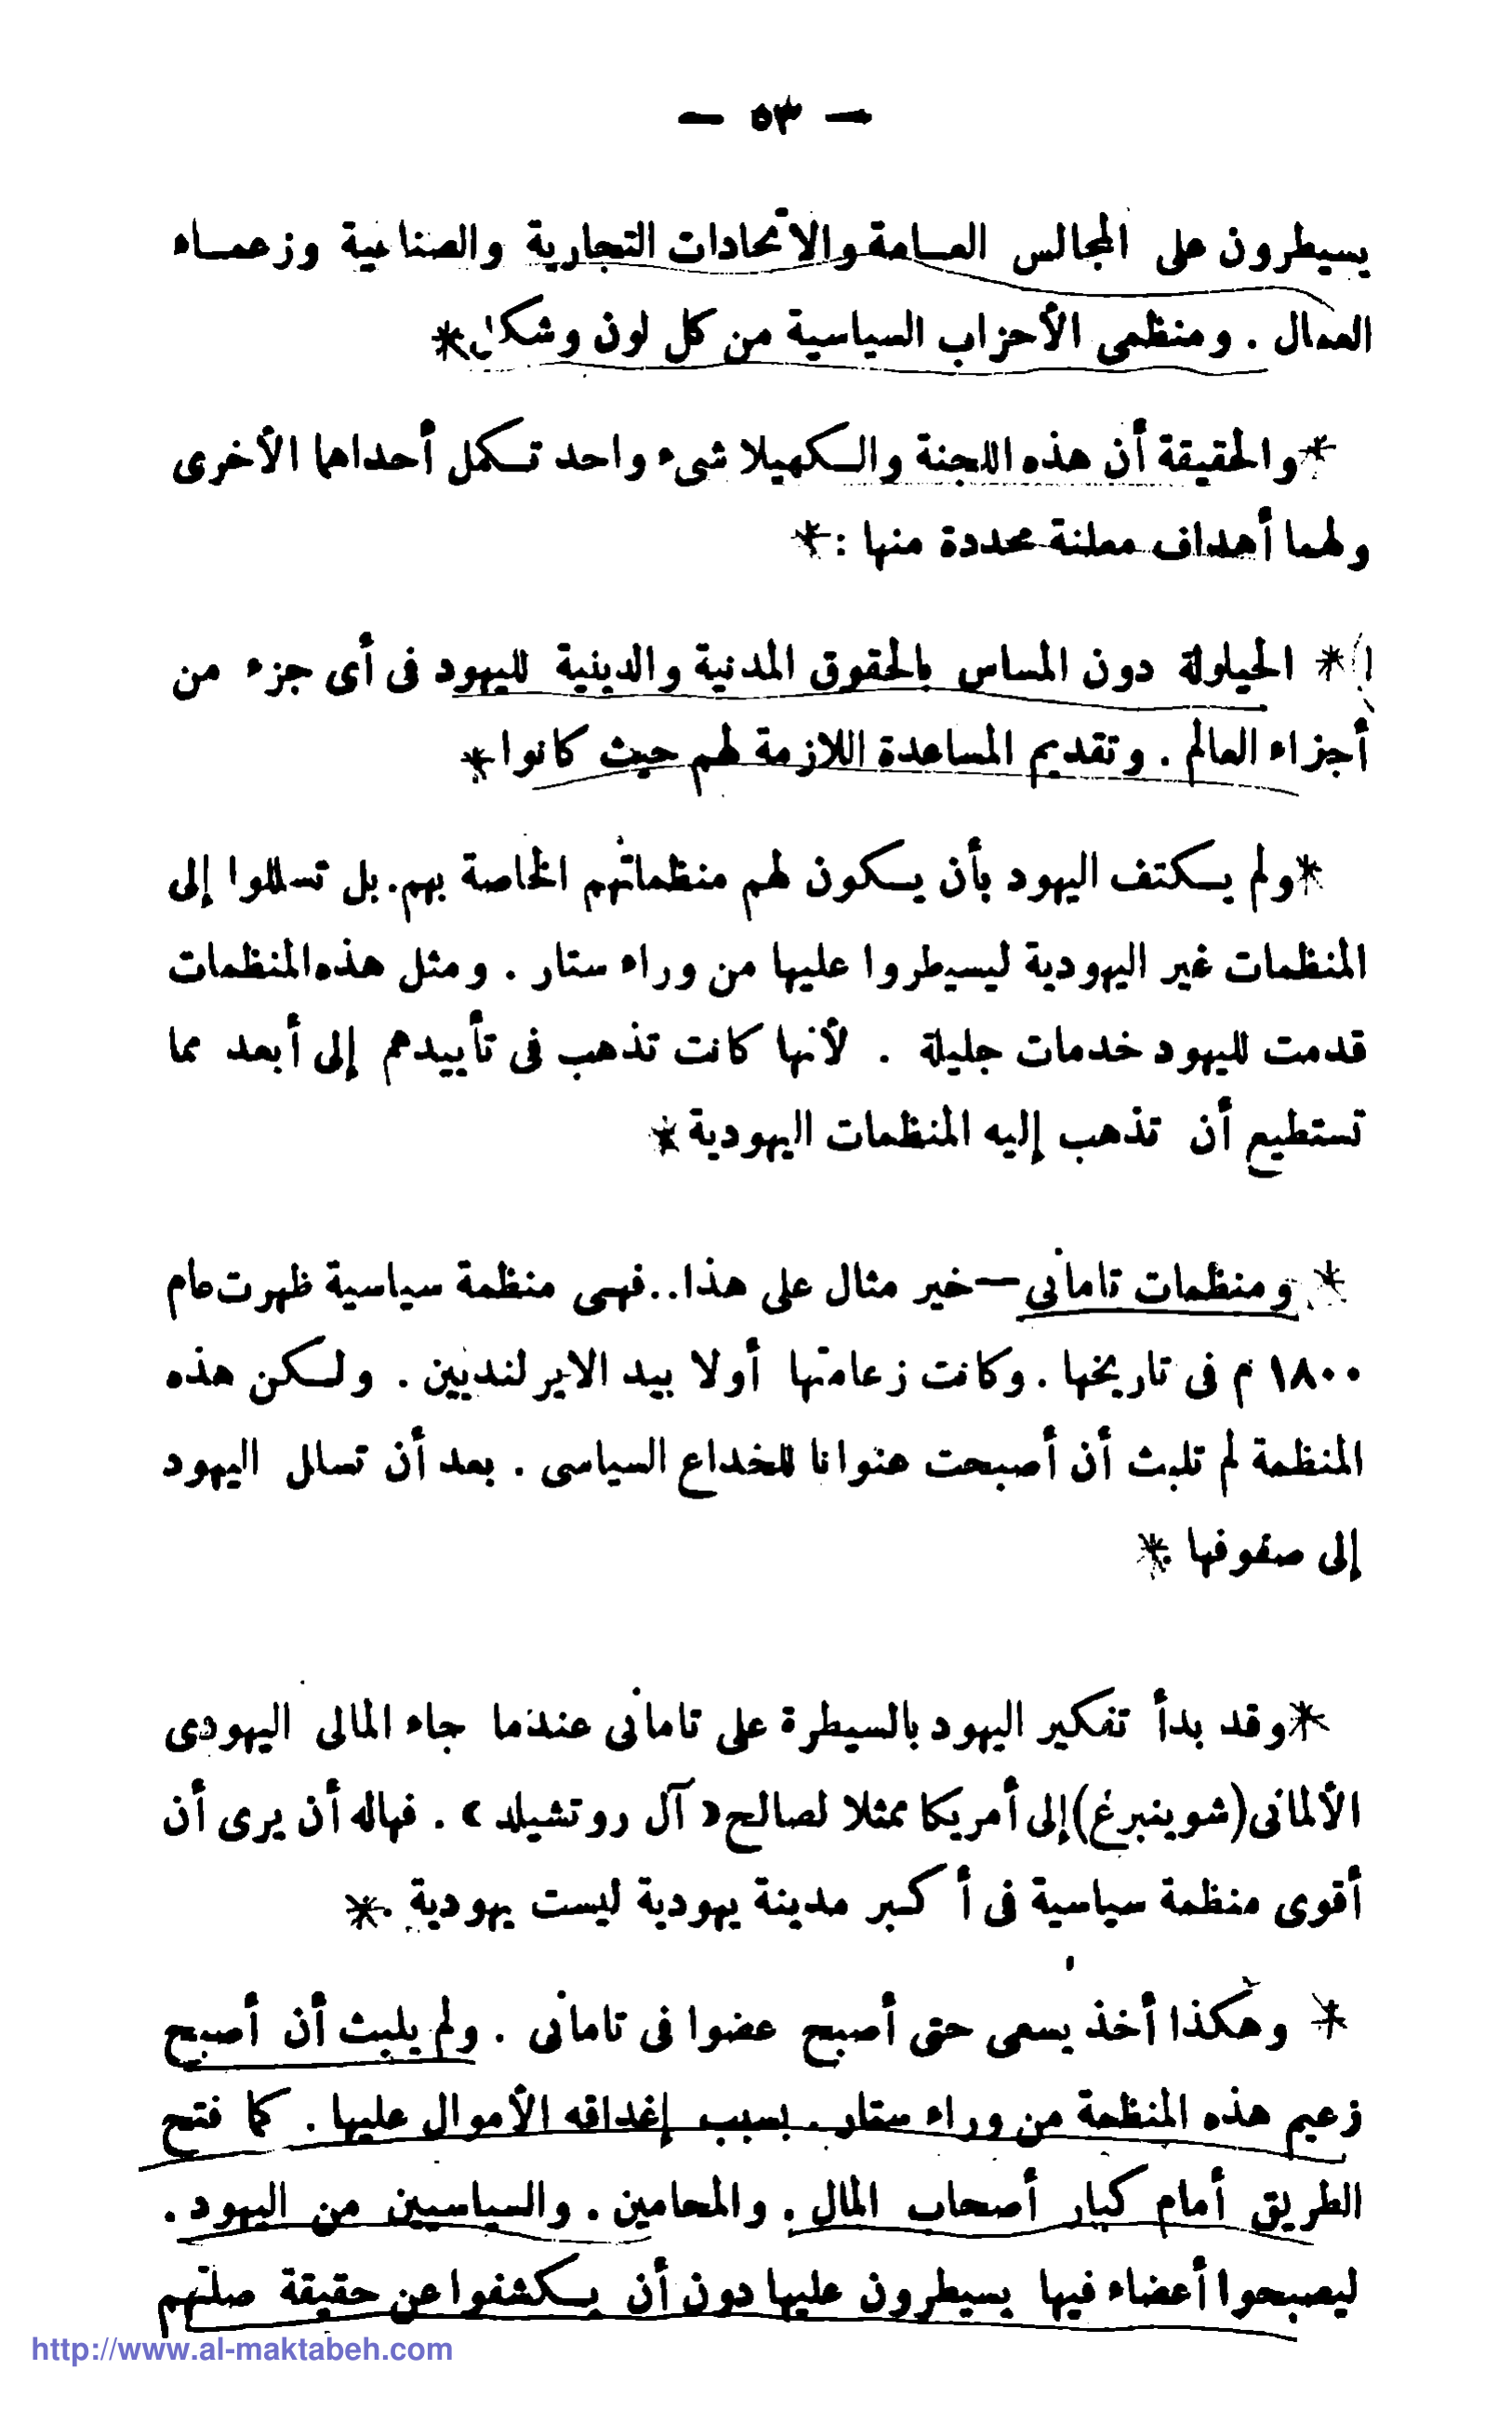 — ٥٣ —
يسيطرون على المجالس العامة والاتحادات التجارية والصناعية وزعماء
العمال . ومنظمى الأحزاب السياسية من كل لون وشكل *
* والحقيقة أن هذه اللجنة والكهيلا شىء واحد تكمل أحداهما الأخرى
ولهما أهداف معلنة محددة منها : *
١ * الحيلولة دون المساس بالحقوق المدنية والدينية لليهود فى أى جزء من
أجزاء العالم . وتقديم المساعدة اللازمة لهم حيث كانوا *
* ولم يكتف اليهود بأن يكون لهم منظماتهم الخاصة بهم . بل تسللوا إلى
المنظمات غير اليهودية ليسيطروا عليها من وراء ستار . ومثل هذه المنظمات
قدمت لليهود خدمات جليلة . لأنها كانت تذهب فى تأييدهم إلى أبعد مما
تستطيع أن تذهب إليه المنظمات اليهودية *
* ومنظمات تامانى — خير مثال على هذا .. فهى منظمة سياسية ظهرت عام
١٨٠٠ م فى تاريخها . وكانت زعامتها أولا بيد الايرلنديين . ولكن هذه
المنظمة لم تلبث أن أصبحت عنوانا للخداع السياسى . بعد أن تسلل اليهود
إلى صفوفها . *
* وقد بدأ تفكير اليهود بالسيطرة على تامانى عندما جاء المالى اليهودى
الألمانى (شوينبرغ) إلى أمريكا ممثلا لصالح « آل روتشيلد » . فهاله أن يرى أن
أقوى منظمة سياسية فى أكبر مدينة يهودية ليست يهودية . *
* وهكذا أخذ يسعى حتى أصبح عضوا فى تامانى . ولم يلبث أن أصبح
زعيم هذه المنظمة من وراء ستار . بسبب إغداقه الأموال عليها . كما فتح
الطريق أمام كبار أصحاب المال . والمحامين . والسياسيين من اليهود .
ليصبحوا أعضاء فيها يسيطرون عليها دون أن يكشفوا عن حقيقة صلتهم
http://www.al-maktabeh.com